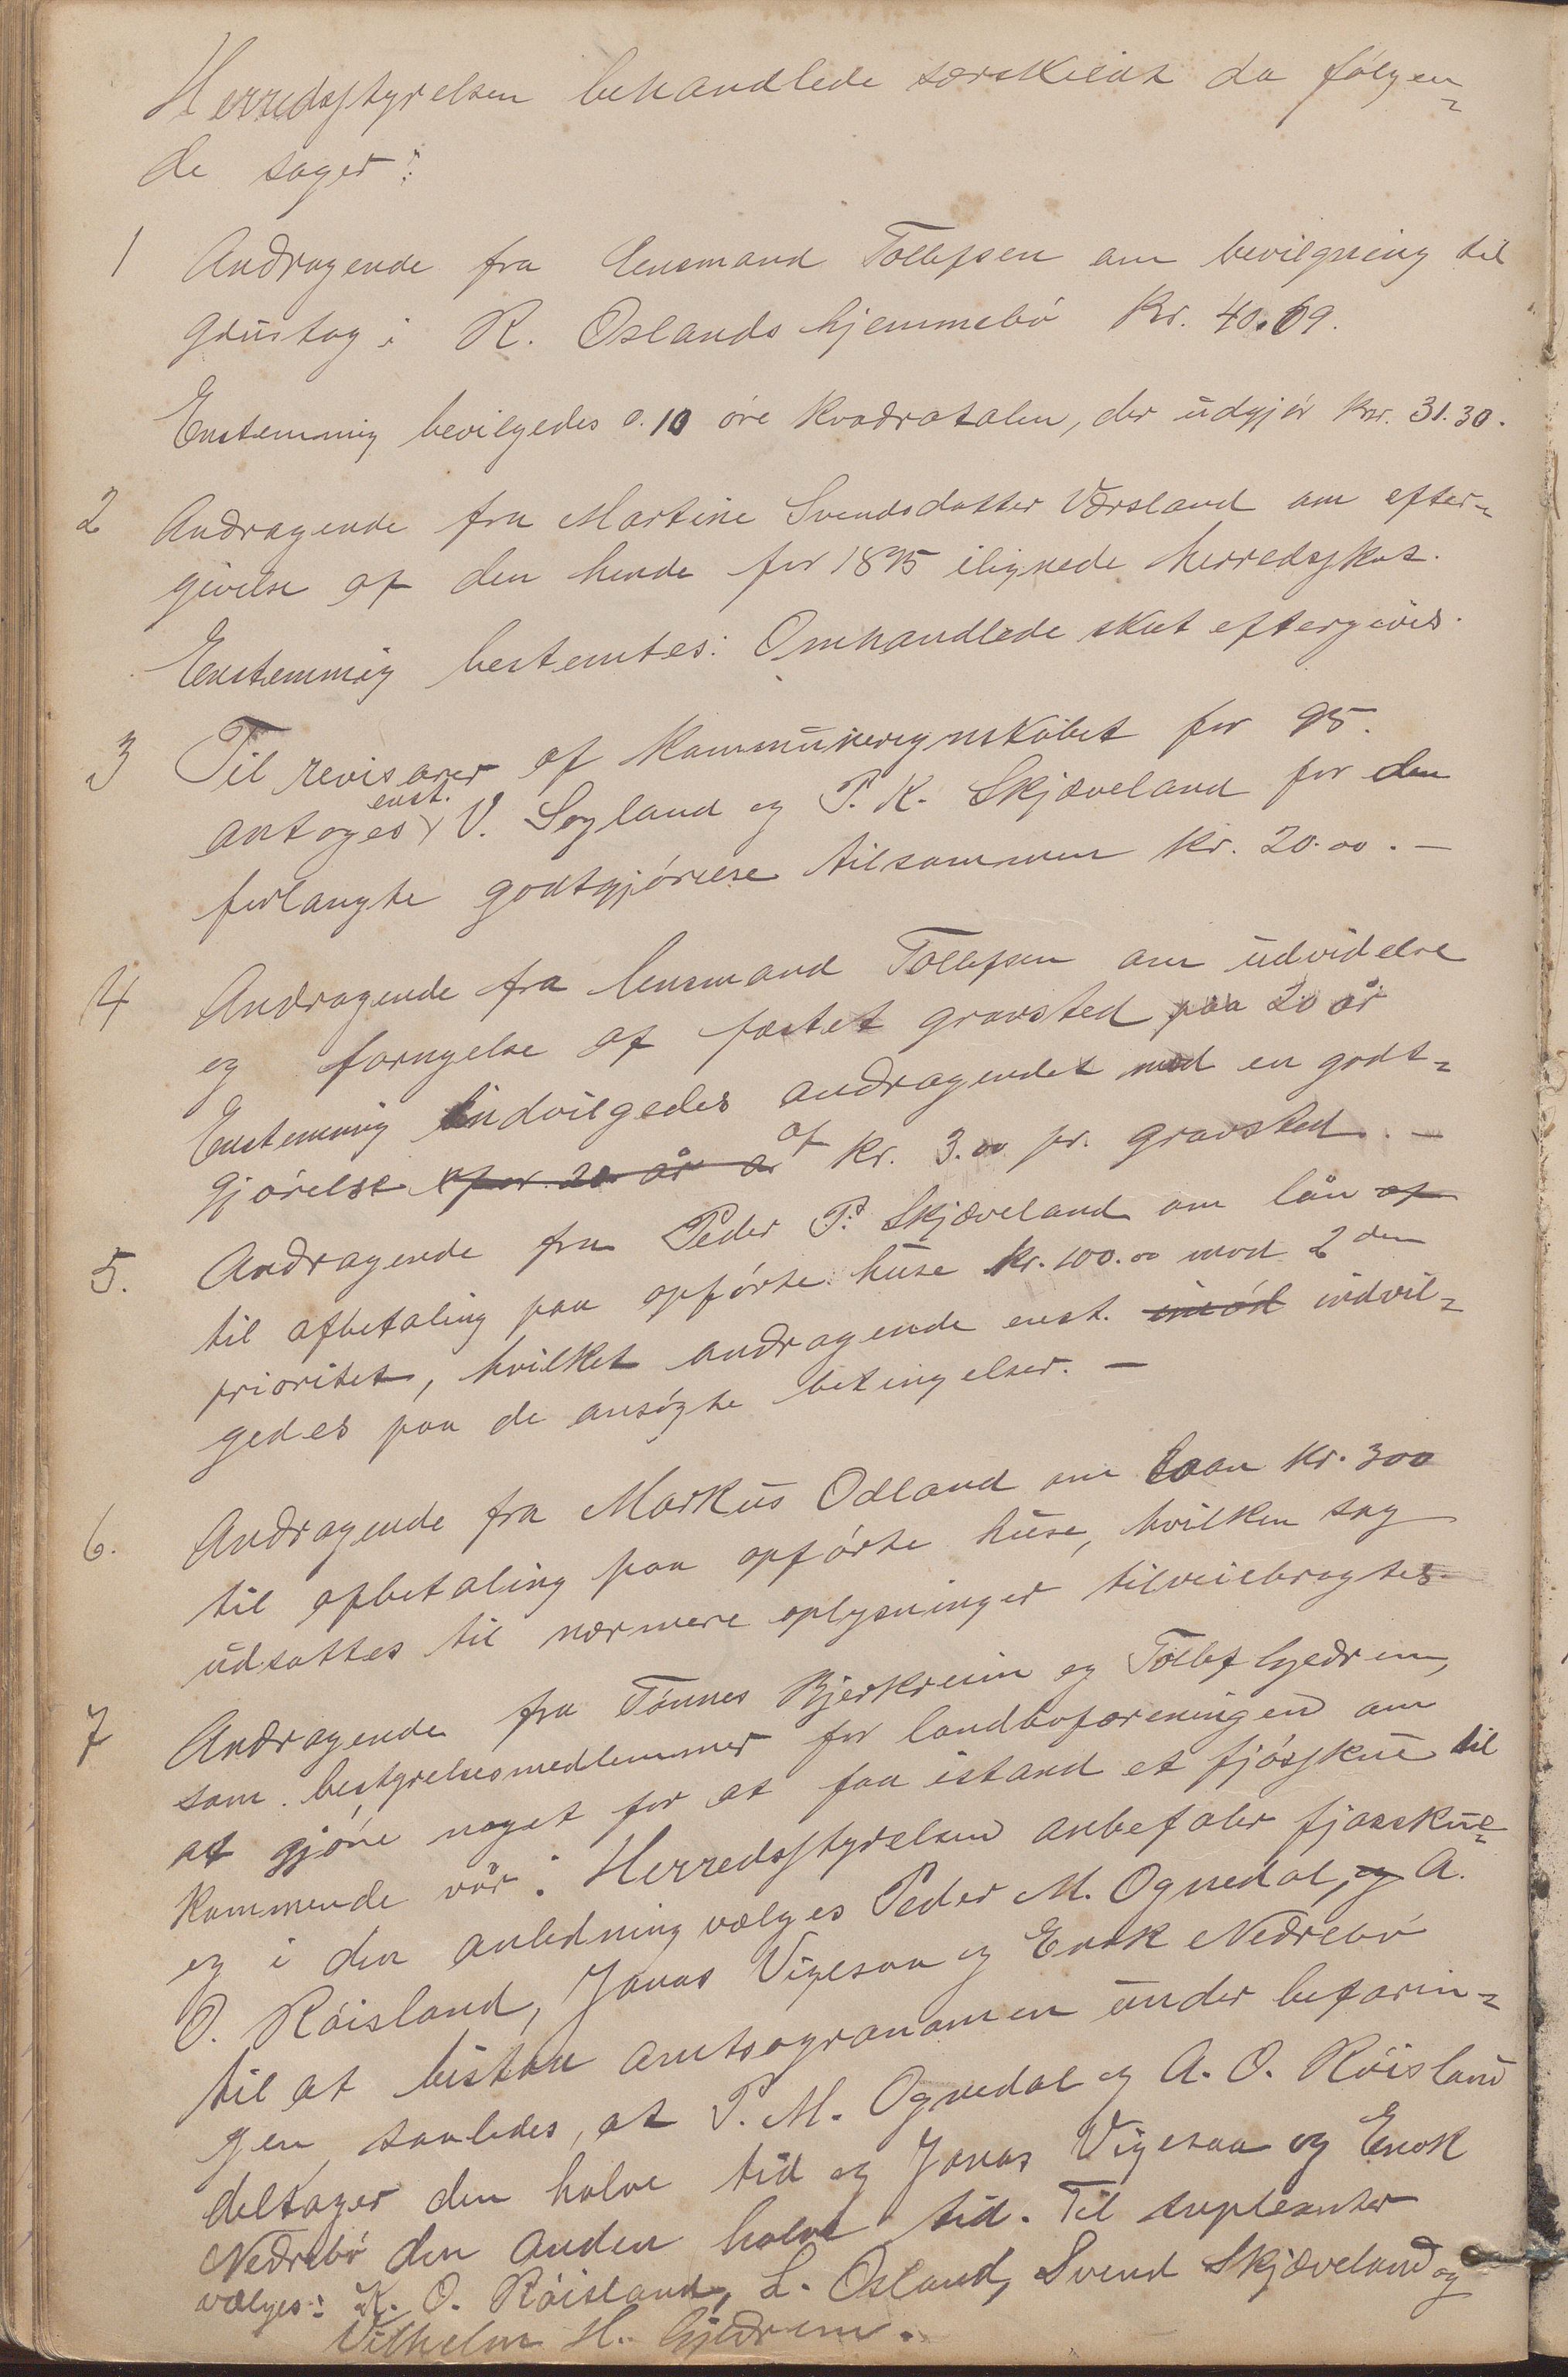 Herredsstyrelsen behandlede særskildt da følgen-
de sager:
1 Andragende fra lensmand Tollefsen om bevilgning til
grustag i R. Oslands hjemmebø Kr. 40.69.
Enstemmig bevilgedes 0.10 øre kvadratalen, der udgjør Kr. 31.30.
2 Andragende fra Martine Svendsdatter Versland om efter-
givelse af den hende for 1895 ilignede herredsskat.
Enstemmig bestemtes: Omhandlede skat eftergives.
3 Til revisorer af kommuneregnskabet for 95.
antoges enst. V. Søyland og P. K. Skjæveland for den
forlangte godtgjørelse tilsammen kr. 20.00. —
4 Andragende fra lensmand Tollefsen om udvidelse
og fornyelse af fæstet gravsted paa 20 år
Enstemmig indvilgedes andragendet mod en godt-
gjørelse for 20 år a af kr. 3.00 pr. gravsted. —
5. Andragende fra Peder P. Skjæveland om lån af
til afbetaling paa opførte huse kr. 100.00 mod 2den
prioritet, hvilket andragende enst. imød indvil-
gedes paa de ansøgte betingelser. —
6. Andragende fra Markus Odland om laan kr. 300
til afbetaling paa opførte huse, hvilken sag
udsattes til nærmere oplysninger tilveiebragtes.
7 Andragende fra Tønnes Bjerkreim og Tollef Gjedrem,
som bestyrelsesmedlemmer for landboforeningen om
at gjøre noget for at faa istand et fjøsskue til
kommende vår. Herredsstyrelsen anbefaler fjøsskue
og i den anledning vælges Peder M. Ognedal, og A.
O. Røisland, Jonas Vigesaa og Enok Nedrebø
til at bistaa amtsagronomen under befarin-
gen, saaledes, at P. M. Ognedal og A. O. Røisland
deltager den halve tid og Jonas Vigesaa og Enok
Nedrebø den anden halve tid. Til supleanter
vælges: K. O. Røisland, L. Osland, Svend Skjæveland og
Vilhelm H. Gjedrem.